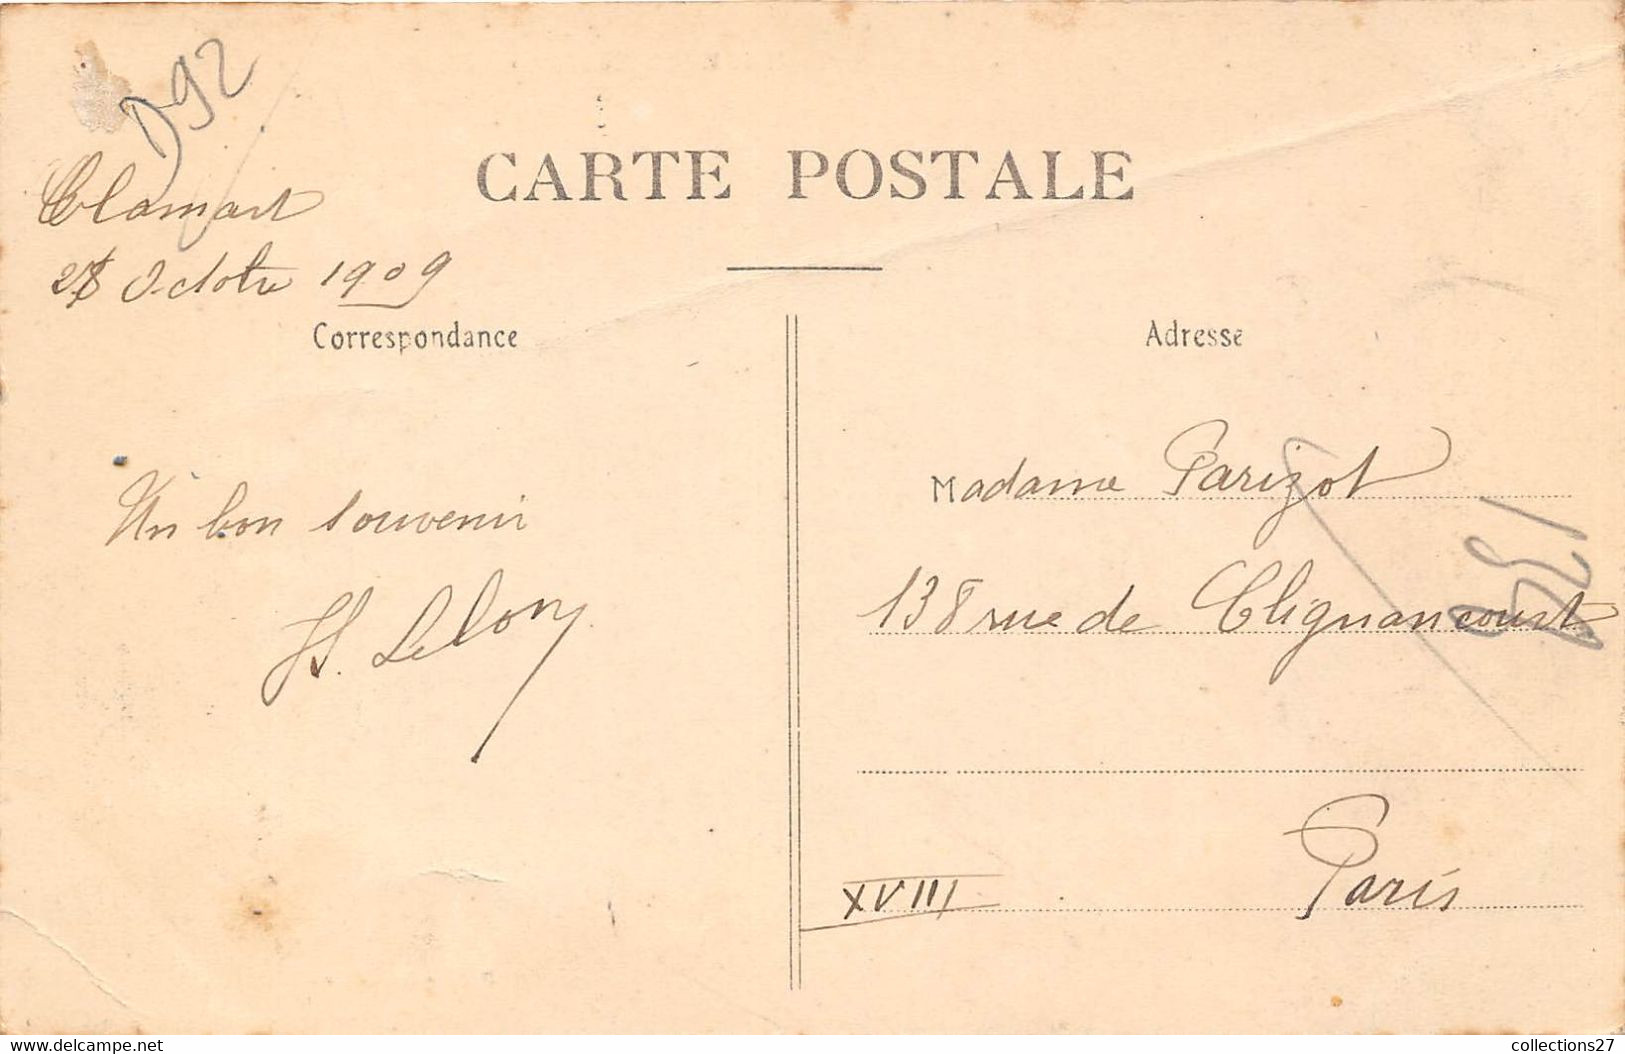 D92
CARTE POSTALE
Clamart
28 Octobre 1909
Correspondance
Un bon souvenir
Adresse
Madame Parizot
138 rue de Clignancourt
Paris
XVIII
www.delcampe.net
collections27